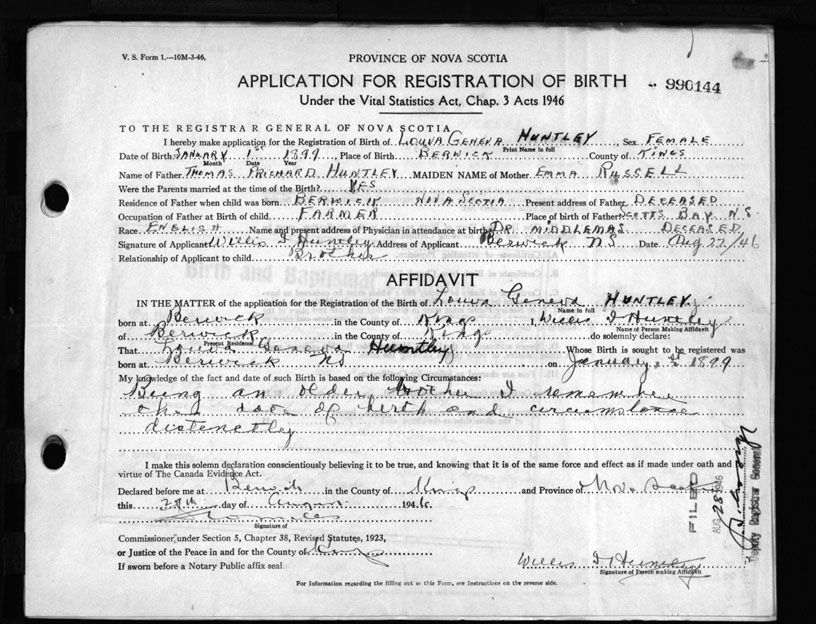 V. S. Form 1.—10M-3-46.
PROVINCE OF NOVA SCOTIA
APPLICATION FOR REGISTRATION OF BIRTH
990144
Under the Vital Statistics Act, Chap. 3 Acts 1946
TO THE REGISTRAR GENERAL OF NOVA SCOTIA
I hereby make application for the Registration of Birth of LOUVA GENEVA HUNTLEY, Sex FEMALE
Print Name in full
Date of Birth JANUARY 1st 1899, Place of Birth BERWICK County of KINGS
Month Date Year
Name of Father THOMAS PRICHARD HUNTLEY MAIDEN NAME of Mother EMMA RUSSELL
Were the Parents married at the time of the Birth? YES
Residence of Father when child was born BERWICK NOVA SCOTIA Present address of Father DECEASED
Occupation of Father at Birth of child FARMER Place of birth of Father SCOTTS BAY N.S.
Race ENGLISH Name and present address of Physician in attendance at birth DR MIDDLEMAS DECEASED
Signature of Applicant Willis I Huntley Address of Applicant Berwick NS Date Aug 27/46
Relationship of Applicant to child Brother
AFFIDAVIT
IN THE MATTER of the application for the Registration of the Birth of Louva Geneva HUNTLEY
Name in full
born at Berwick in the County of Kings I, Willis I Huntley
Name of Person Making Affidavit
of Berwick in the County of Kings do solemnly declare:
Present Residence
That Louva Geneva Huntley Whose Birth is sought to be registered was
born at Berwick NS on January 1st 1899
My knowledge of the fact and date of such Birth is based on the following Circumstances:
Being an older brother I remember
the date of birth and circumstance
distenctley
I make this solemn declaration conscientiously believing it to be true, and knowing that it is of the same force and effect as if made under oath and by
virtue of The Canada Evidence Act.
Declared before me at Berwick in the County of Kings and Province of Nova Scotia
this 27th day of August 1946
Signature of
Commissioner under Section 5, Chapter 38, Revised Statutes, 1923,
or Justice of the Peace in and for the County of Kings
If sworn before a Notary Public affix seal
Willis I Huntley
Signature of Person making Affidavit
For Information regarding the filling out of this Form, see Instructions on the reverse side.
FILED
AUG 28 1946
Deputy Registrar General